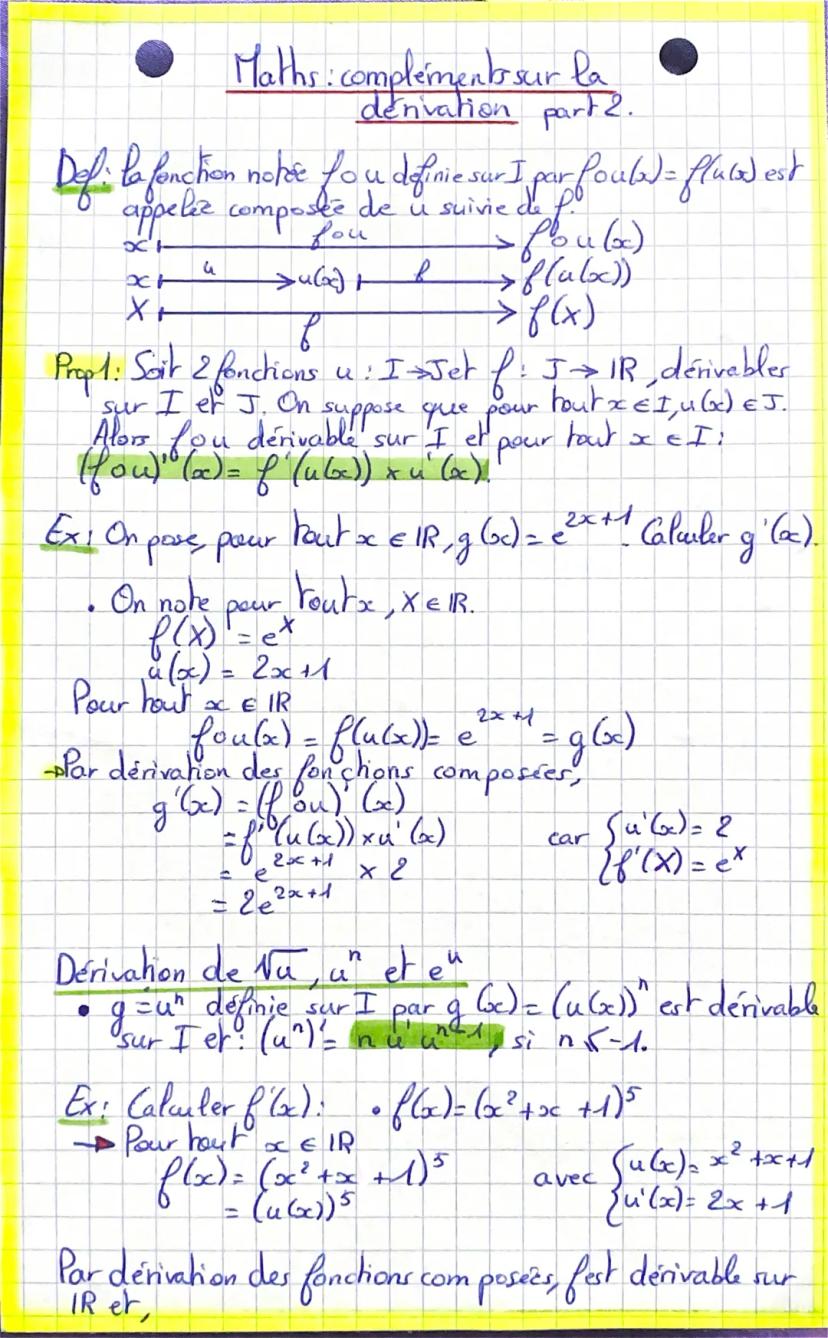 Maths : compléments sur la
dérivation part 2.
Def : la fonction notée fou définie sur I par fou(x) = f(u(x) est
appelée composée de u suivie de f.
fou
x ⟼ fou(x)
x ⟼ u u(x) ⟼ f f(u(x))
X ⟼ f(x)
f
Prop1 : Soit 2 fonctions u : I → J et f : J → IR, dérivables
sur I et J. On suppose que pour tout x ∈ I, u(x) ∈ J.
Alors fou dérivable sur I et pour tout x ∈ I :
(fou)'(x) = f'(u(x)) × u'(x).
Ex : On pose, pour tout x ∈ IR, g(x) = e^{2x+1}. Calculer g'(x).
• On note pour tout x, X ∈ IR.
f(X) = e^X
u(x) = 2x+1
Pour tout x ∈ IR
fou(x) = f(u(x)) = e^{2x+1} = g(x)
→ Par dérivation des fonctions composées,
g'(x) = (fou)'(x)
= f'(u(x)) × u'(x) car { u'(x) = 2
= e^{2x+1} × 2 { f'(X) = e^X
= 2e^{2x+1}
Dérivation de √u, u^n et e^u
• g = u^n définie sur I par g(x) = (u(x))^n est dérivable
sur I et : (u^n)' = n u' u^{n-1}, si n ≤ -1.
Ex : Calculer f'(x) : • f(x) = (x²+x+1)^5
→ Pour tout x ∈ IR
f(x) = (x²+x+1)^5 avec { u(x) = x²+x+1
= (u(x))^5 { u'(x) = 2x+1
Par dérivation des fonctions composées, f est dérivable sur
IR et,